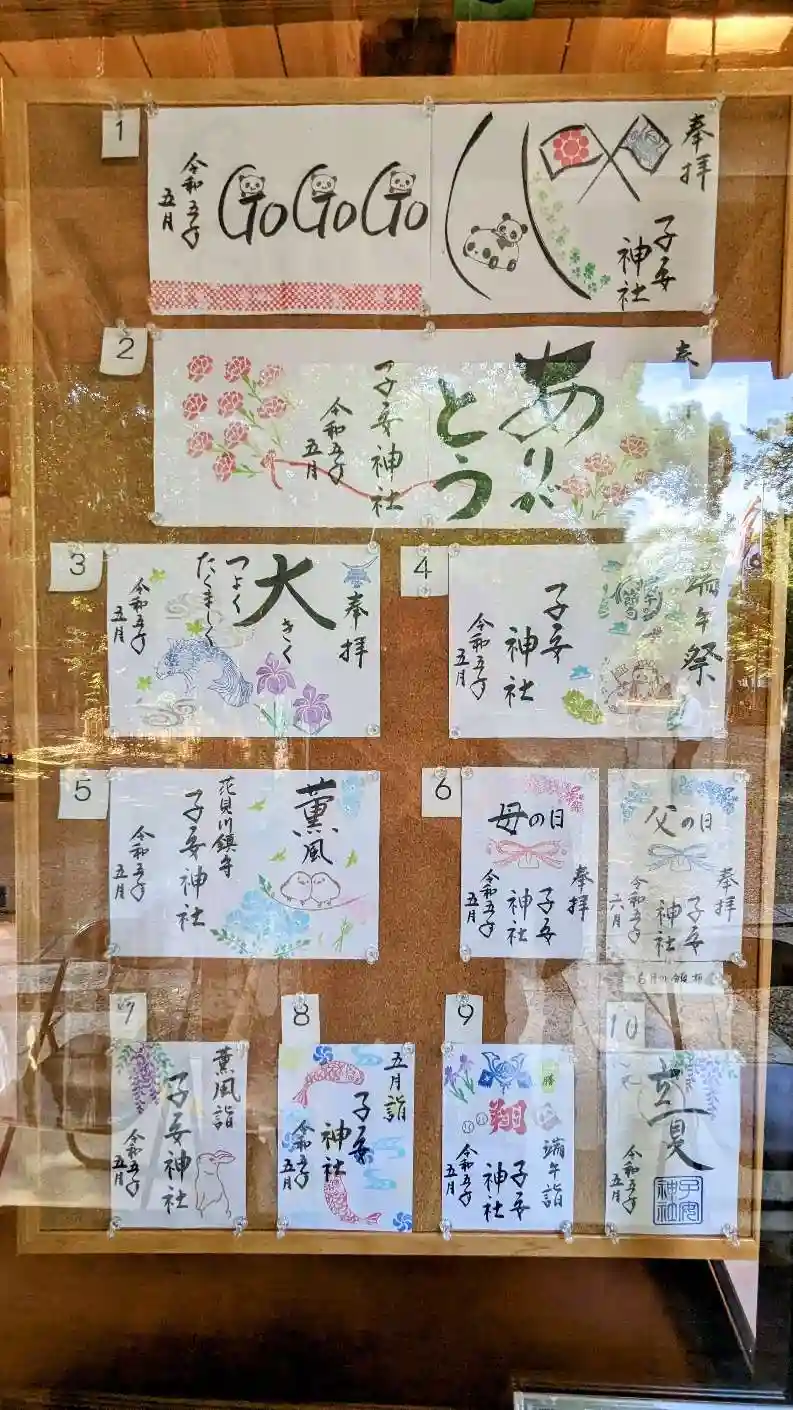 1
奉拝
子安
神社
GoGoGo
令和五年
五月
2
ありが
とう
子安神社
令和五年
五月
3
奉拝
大きく
つよく
たくましく
令和五年
五月
4
端午祭
子安
神社
令和五年
五月
5
薫風
花見川鎮守
子安神社
令和五年
五月
6
母の日
奉拝
子安
神社
令和五年
五月
父の日
奉拝
子安
神社
令和五年
六月
7
薫風詣
子安神社
令和五年
五月
8
五月詣
子安
神社
令和五年
五月
9
勝
翔
端午詣
子安
神社
令和五年
五月
10
立夏
令和五年
五月
子安
神社